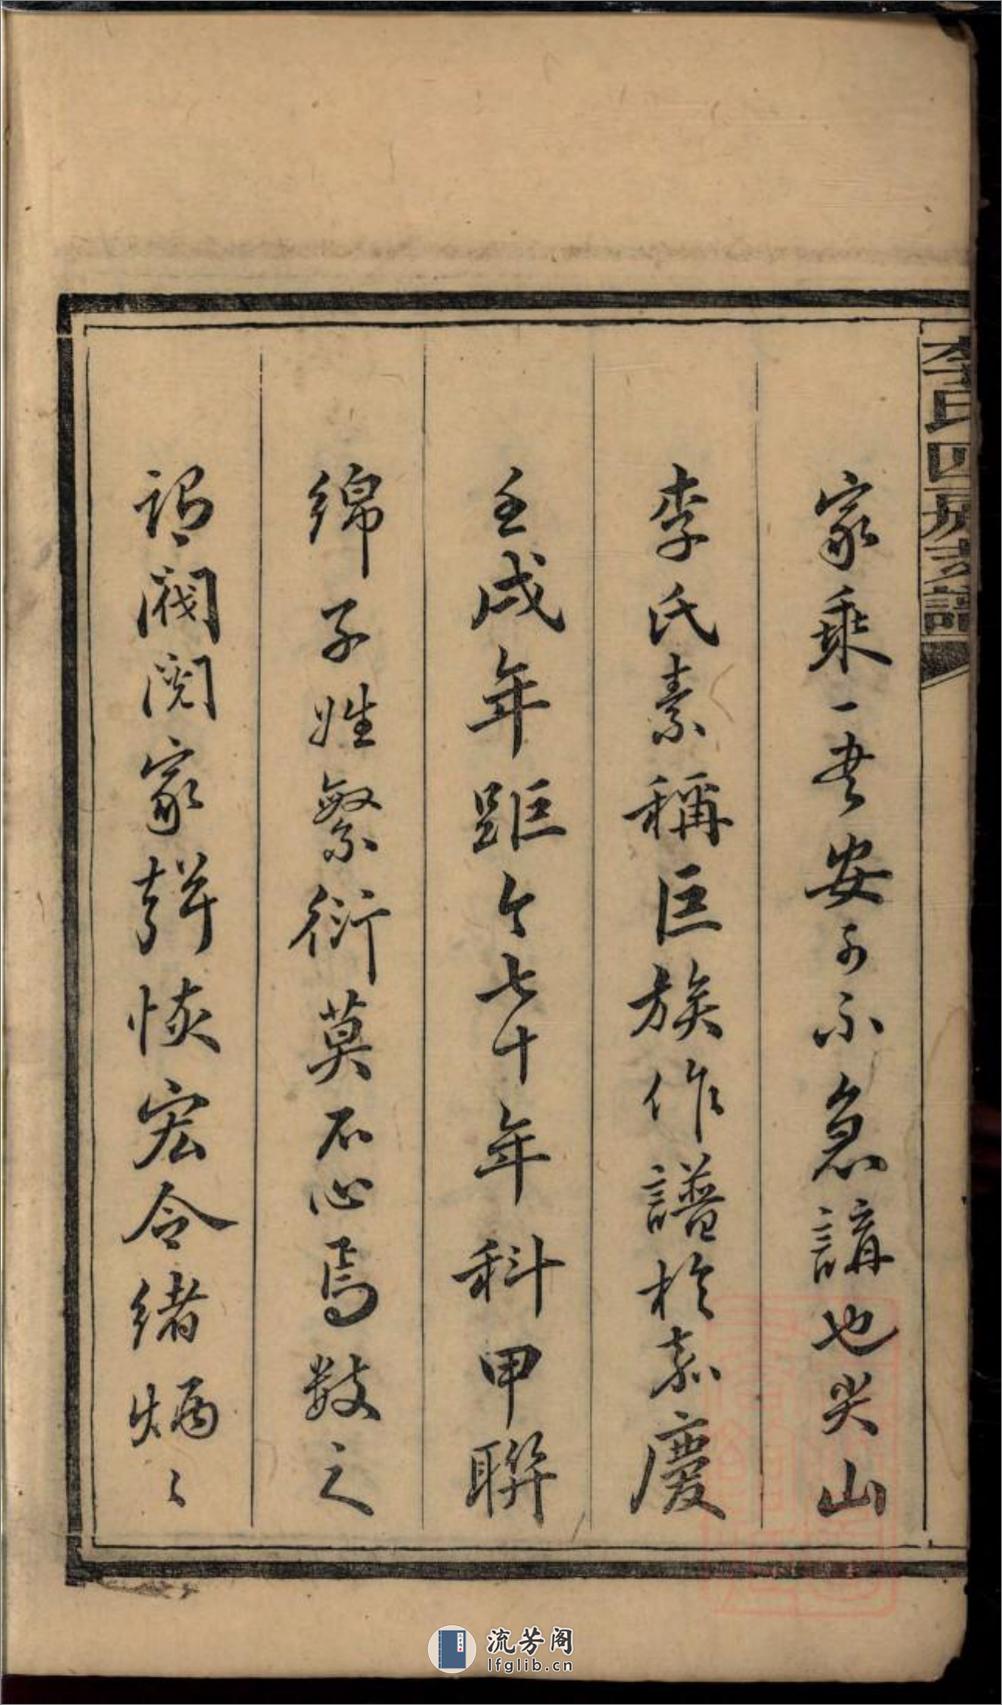 李氏四房支譜
家乘一書安可不急講也尖山
李氏素稱巨族作譜於嘉慶
壬戌年距今七十年科甲聯
綿子姓繁衍莫不心焉數之
謂閥閱家聲恢宏令緒炳〻
流芳阁
lfglib.cn